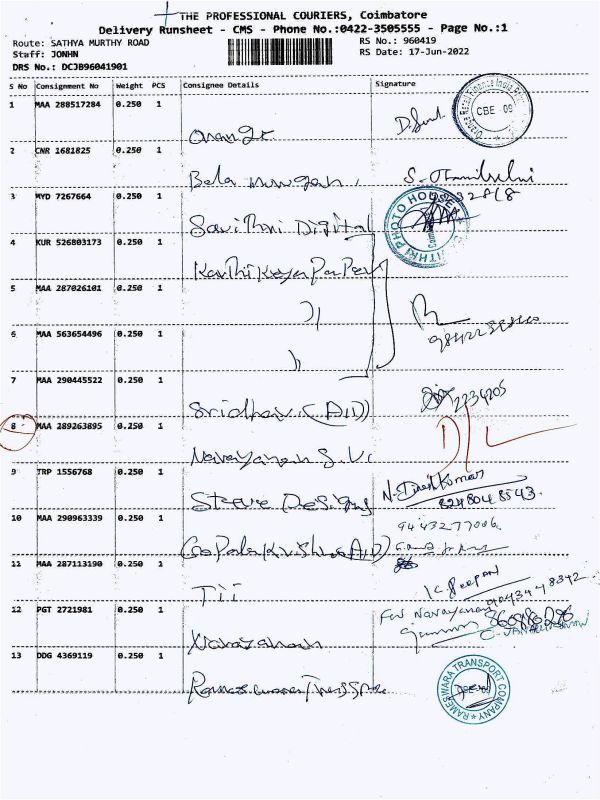 THE PROFESSIONAL COURIERS, Coimbatore
Delivery Runsheet - CMS - Phone No.:0422-3505555 - Page No.:1
Route: SATHYA MURTHY ROAD
RS No.: 960419
Staff: JONHN
RS Date: 17-Jun-2022
DRS No.: DCJB96041901
S No Consignment No Weight PCS Consignee Details Signature
1 MAA 288517284 0.250 1
CBE - 09
2 CNR 1681825 0.250 1
Bala murugan
3 MYD 7267664 0.250 1
Savithri Digital
PHOTO HOUSE
4 KUR 526803173 0.250 1
5 MAA 287026101 0.250 1
6 MAA 563654496 0.250 1
7 MAA 290445522 0.250 1
Sridhar (AID)
2234205
8 MAA 289263895 0.250 1
Narayanan S.V.
D/L
9 TRP 1556768 0.250 1
Steeve Designs
N. Dinesh Kumar
8248048543.
10 MAA 290963339 0.250 1
9443277006
GoPala Krishna (AID)
11 MAA 287113190 0.250 1
Tii
12 PGT 2721981 0.250 1
For Narayanan
Narayanan
13 DDG 4369119 0.250 1
RAMESWARA TRANSPORT COMPANY